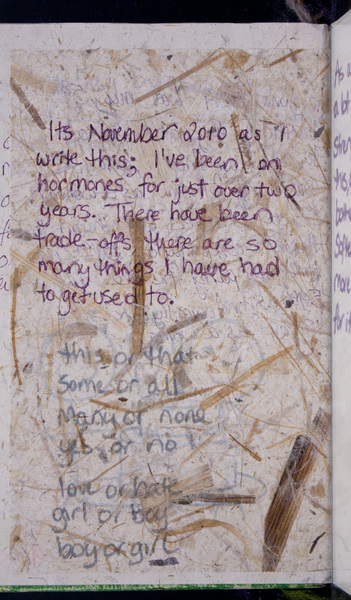 Its November 2010 as I
write this; I've been on
hormones for just over two
years. There have been
trade-offs, there are so
many things I have had
to get used to.
this or that
some or all
Many or none
yes or no
love or hate
girl or boy
boy or girl
As a